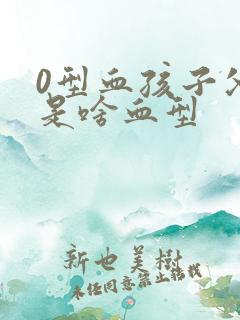 0型血孩子父
是啥血型
新也美樹
未经同意禁止转载